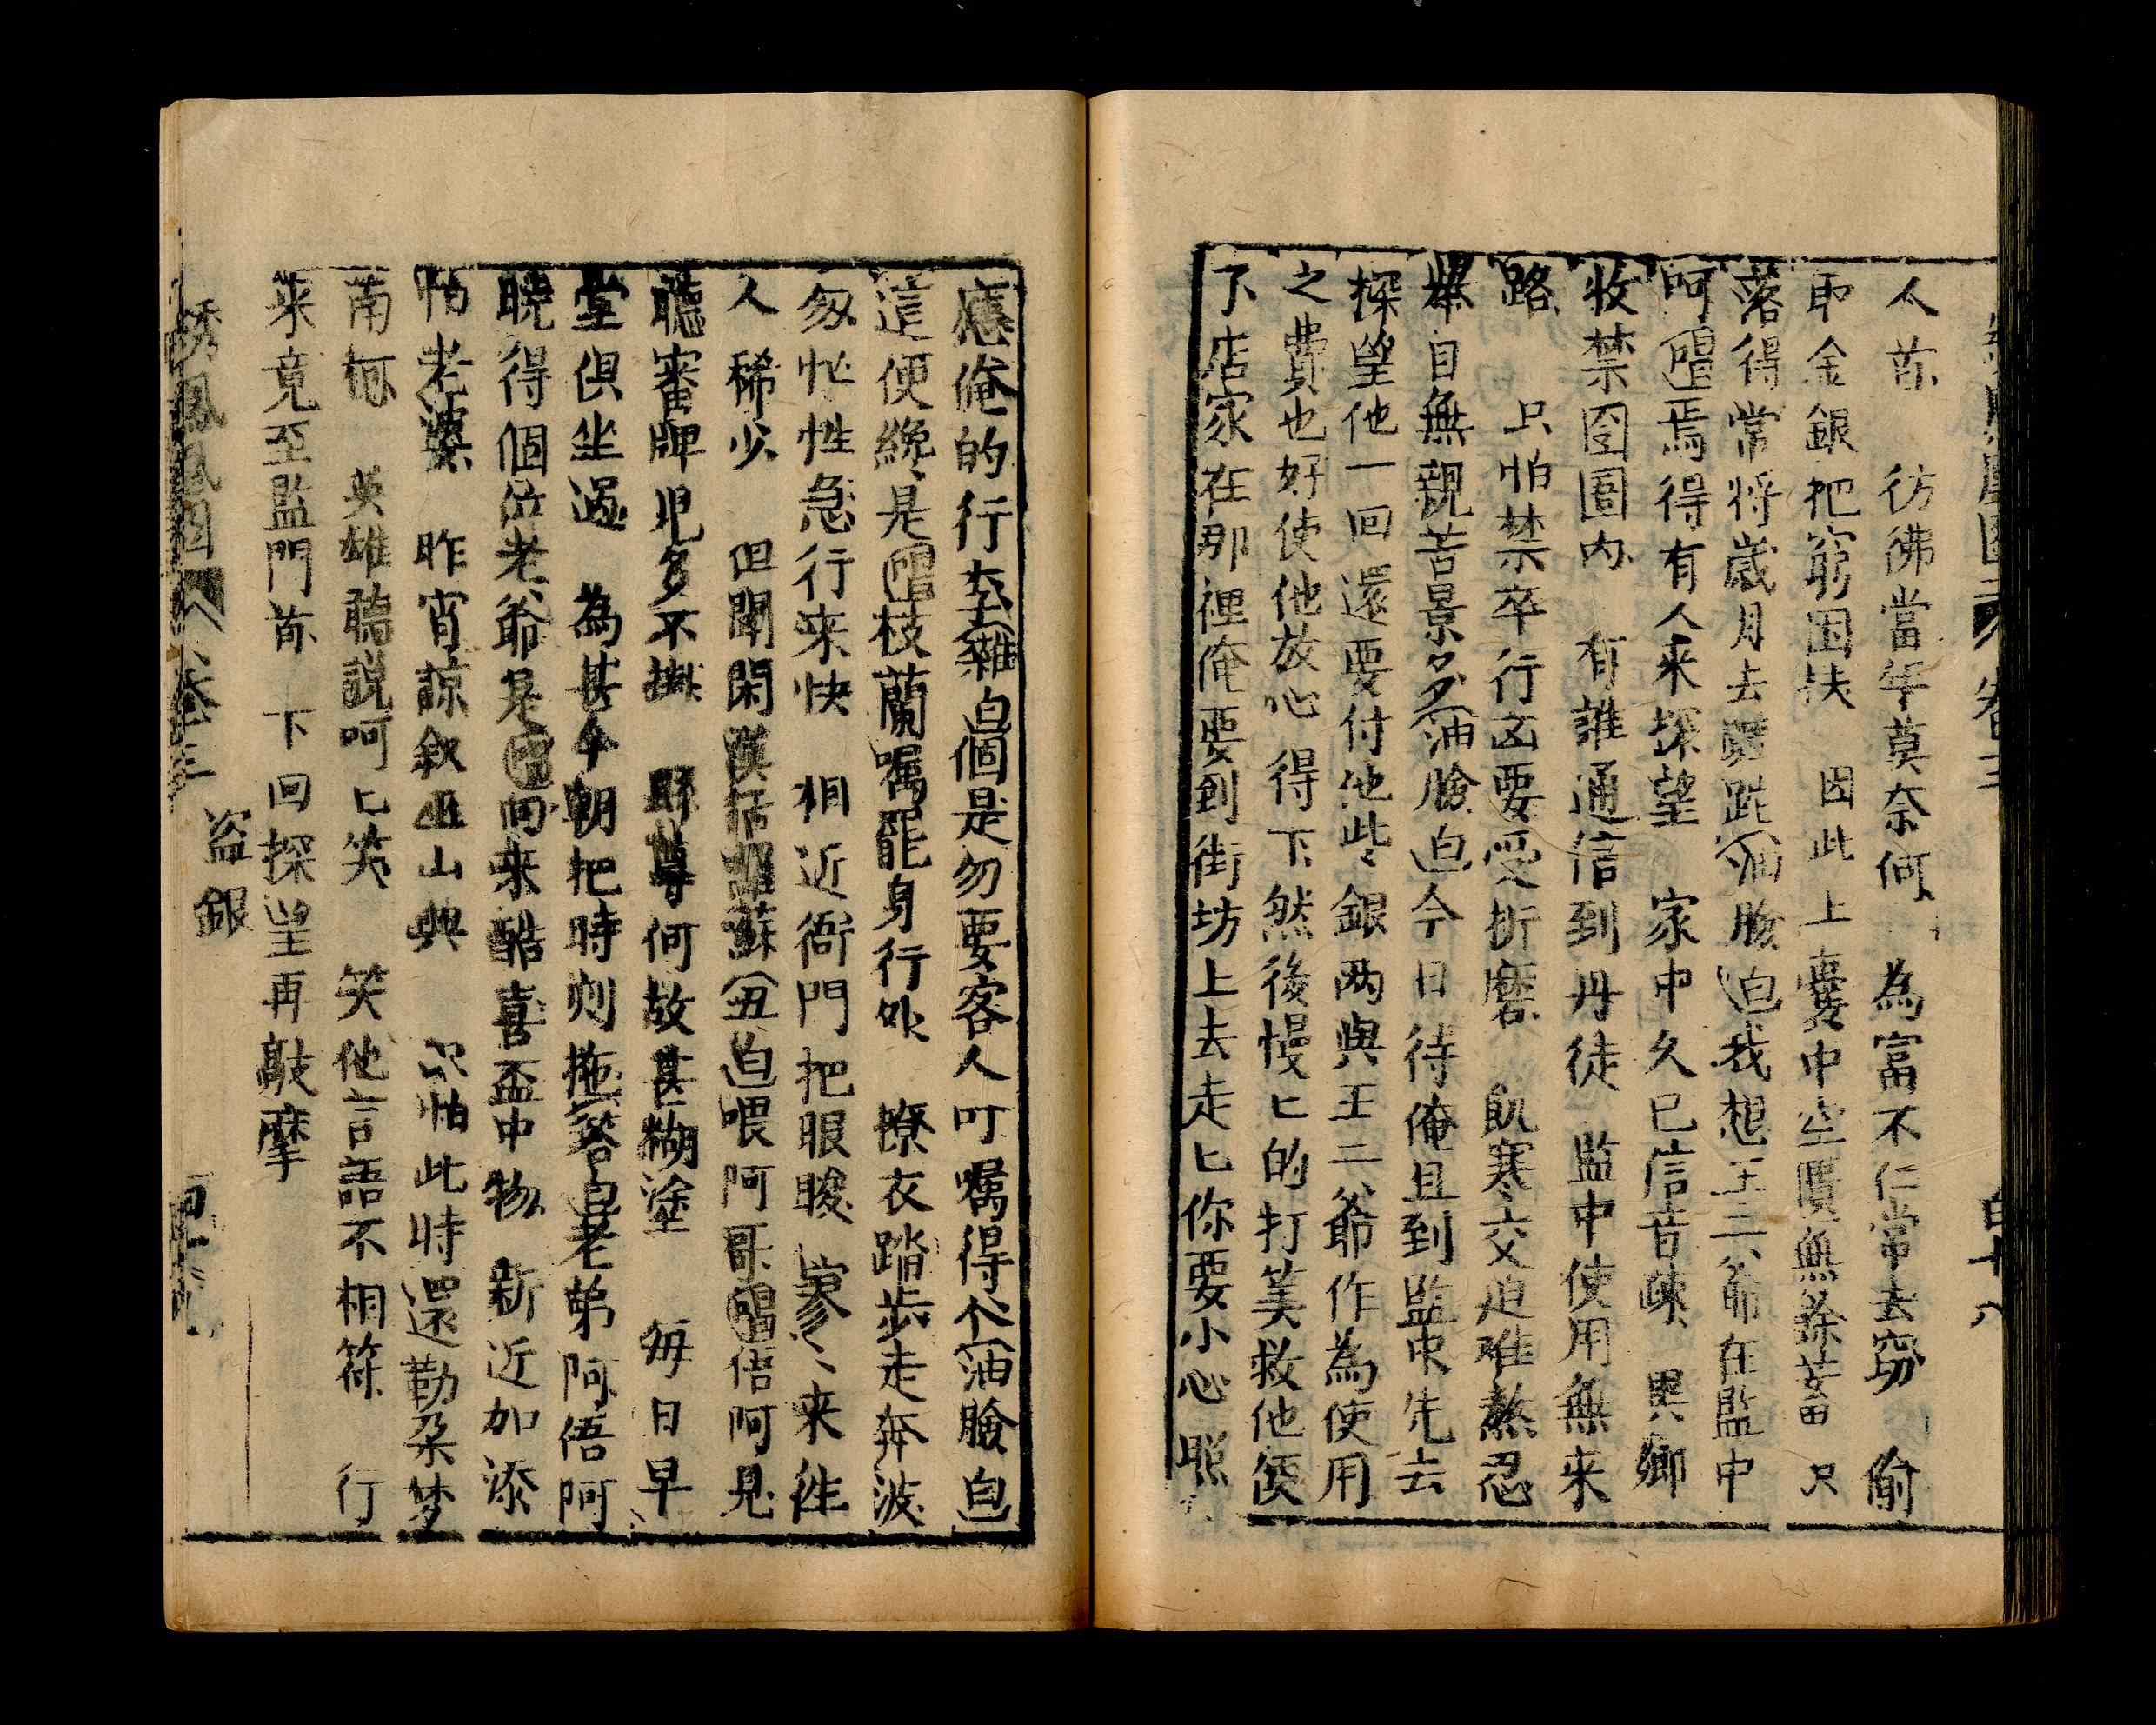 人前　彷彿當年莫奈何　為富不仁常去窃　偷
耶金銀把窮困扶　因此上囊中空匱無餘蓄　只
落得常將歲月去蹉跎（油臉白）我想王二爺在監中
呵（唱）焉得有人來探望　家中久已信音疎　異鄉
收禁囹圄內　有誰通信到丹徒　監中使用無來
路　只怕禁卒行凶要受折磨　飢寒交迫难熬忍
舉目無親苦景多（油臉白）今日待俺且到監中先去
探望他一回還要付他些銀两與王二爺作為使用
之費也好使他放心得下然後慢匕的打筭救他便
了店家在那裡俺要到街坊上去走匕你要小心照
應俺的行李（雜白）個是勿要客人叮嘱得个（油臉白）
這便纔是（唱）枝蘭嘱罷身行外　撩衣踏步走奔波
匆忙性急行来快　相近衙門把眼睃　寥〻来徃
人稀少　但聞閑漢話囉蘇（丑白）喂阿哥（唱）俉阿見
聽審牌兒多不掛　縣尊何故甚糊塗　每日早
堂俱坐過　為甚今朝把時刻拖（荅白）老弟阿俉阿
曉得個位老爺是（唱）向来酷喜盃中物　新近加添
怕老婆　昨宵諒叙巫山興　只怕此時還勒朶梦
南柯　英雄聽説呵匕笑　笑他言語不相符　行
来竟至監門前　下回探望再敲摩
綉鳳凰圖　卷三　盜銀